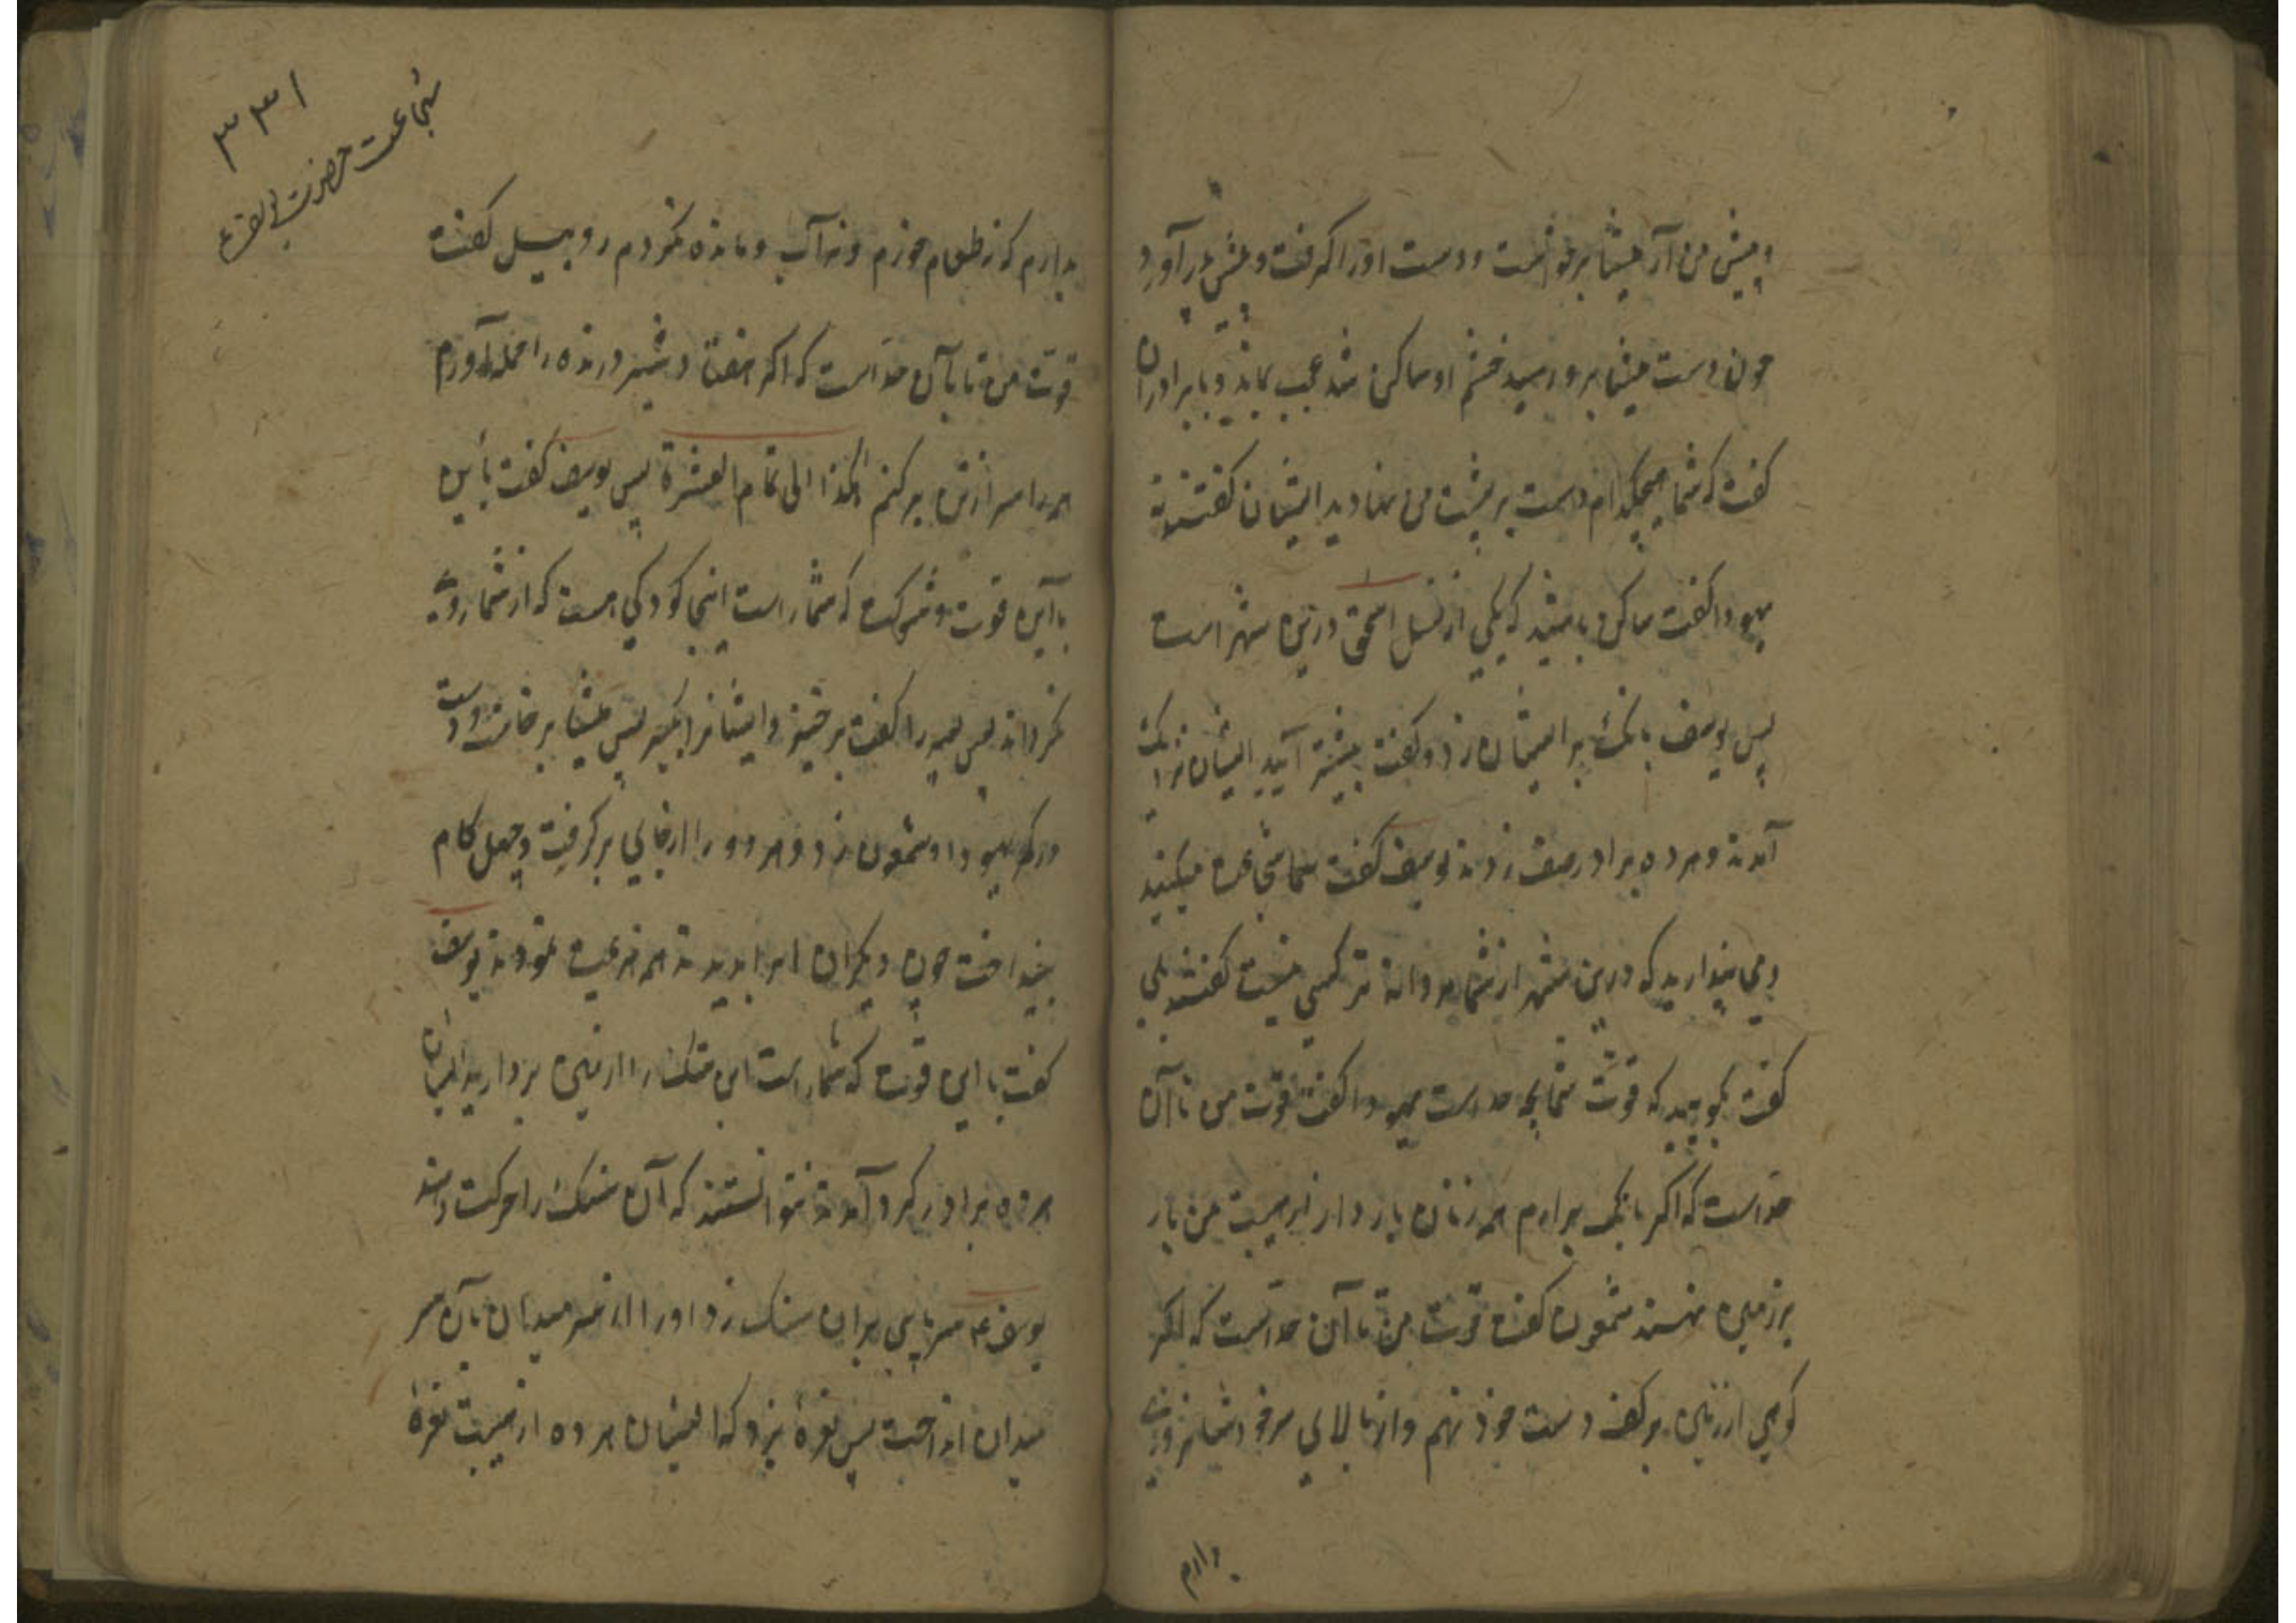 و پیش من آر میشا برخواست و دست او را گرفت و پیش در آورد
چون دست میشا برو رسید خشم او ساکن شد عجب بماند و با برادران
گفت که شما هیچکدام دست بر پشت من نهادید ایشان گفتند نه
یهودا گفت ساکن باشید که یکی از نسل اسحق درین شهر است
پس یوسف بانک بر ایشان زد و گفت پیشتر آیید ایشان نزدیک
آمدند و هر ده برادر صف زدند یوسف گفت شما شجاعت میکنید
و می پندارید که درین شهر از شما مردانه تر کسی نیست گفتند بلی
گفت بگویید که قوت شما بچه حد است یهودا گفت قوت من تا آن
حد است که اگر بانک برآرم همه زنان باردار از هیبت من بار
بر زمین نهند شمعون گفت قوت من تا آن حد است که اگر
کوهی از زمین بر کف دست خود نهم و از بالای سر خود
دارم
۳۳۱
شجاعت حضرت یوسف ع
بدارم که نه طعام خورم و نه آب و مانده نکردم روبیل گفت
قوت من تا بآن حد است که اگر هفتاد شیر درنده را حمله آورم
همه را سر از تن برکنم هکذا الی تمام العشرة پس یوسف گفت باین
با این قوت و شوکت که شما راست اینجا کودکی هست که از شما روی
نکرداند پس میشا را گفت برخیز و ایشانرا بگیر پس میشا برخاست و دست
در کمر یهودا و شمعون زد و هر دو را از جای برگرفت و چهل کام
بینداخت چون دیگران این را بدیدند همه هزیمت نمودند یوسف
گفت با این قوت که شما راست این سنک را از زمین بردارید ایشان
هر ده برادر گرد آمدند نتوانستند که آن سنک را حرکت دهند
یوسف ع سر پای بر آن سنک زد او را از سر میدان بآن سر
میدان انداخت پس نعرهٔ بزد که ایشان هر ده از هیبت نعرهٔ